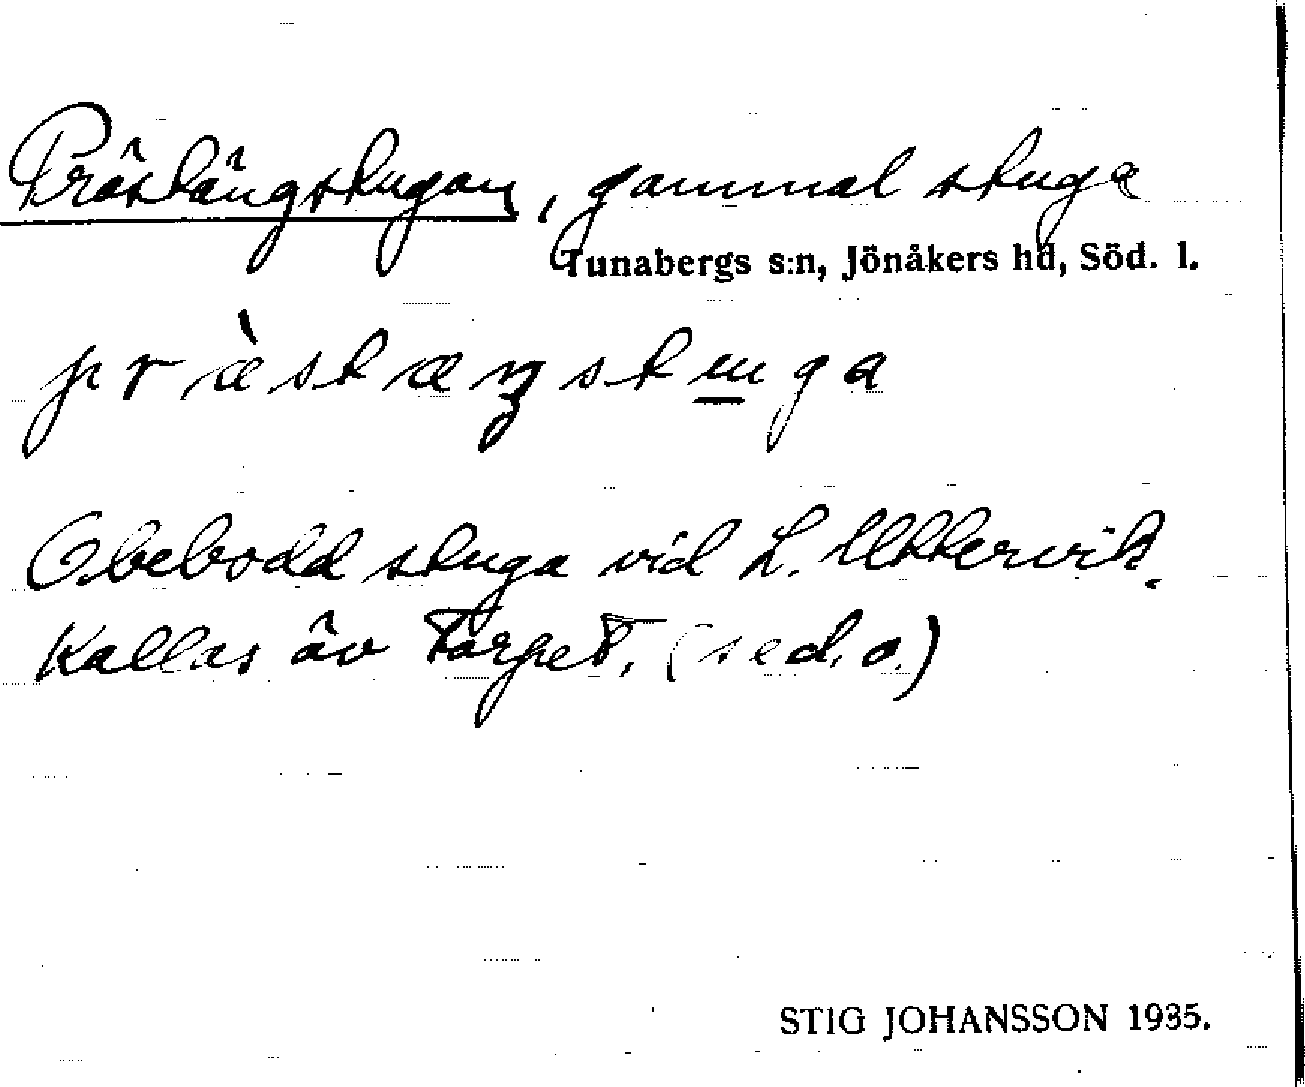 Prästängstugan, gammal stuga
Tunabergs s:n, Jönåkers hd, Söd. l.
præ̀stæŋstu̲ga
Obebodd stuga vid L. Uttervik.
Kallas äv Torpet. (se d. o.)
STIG JOHANSSON 1935.